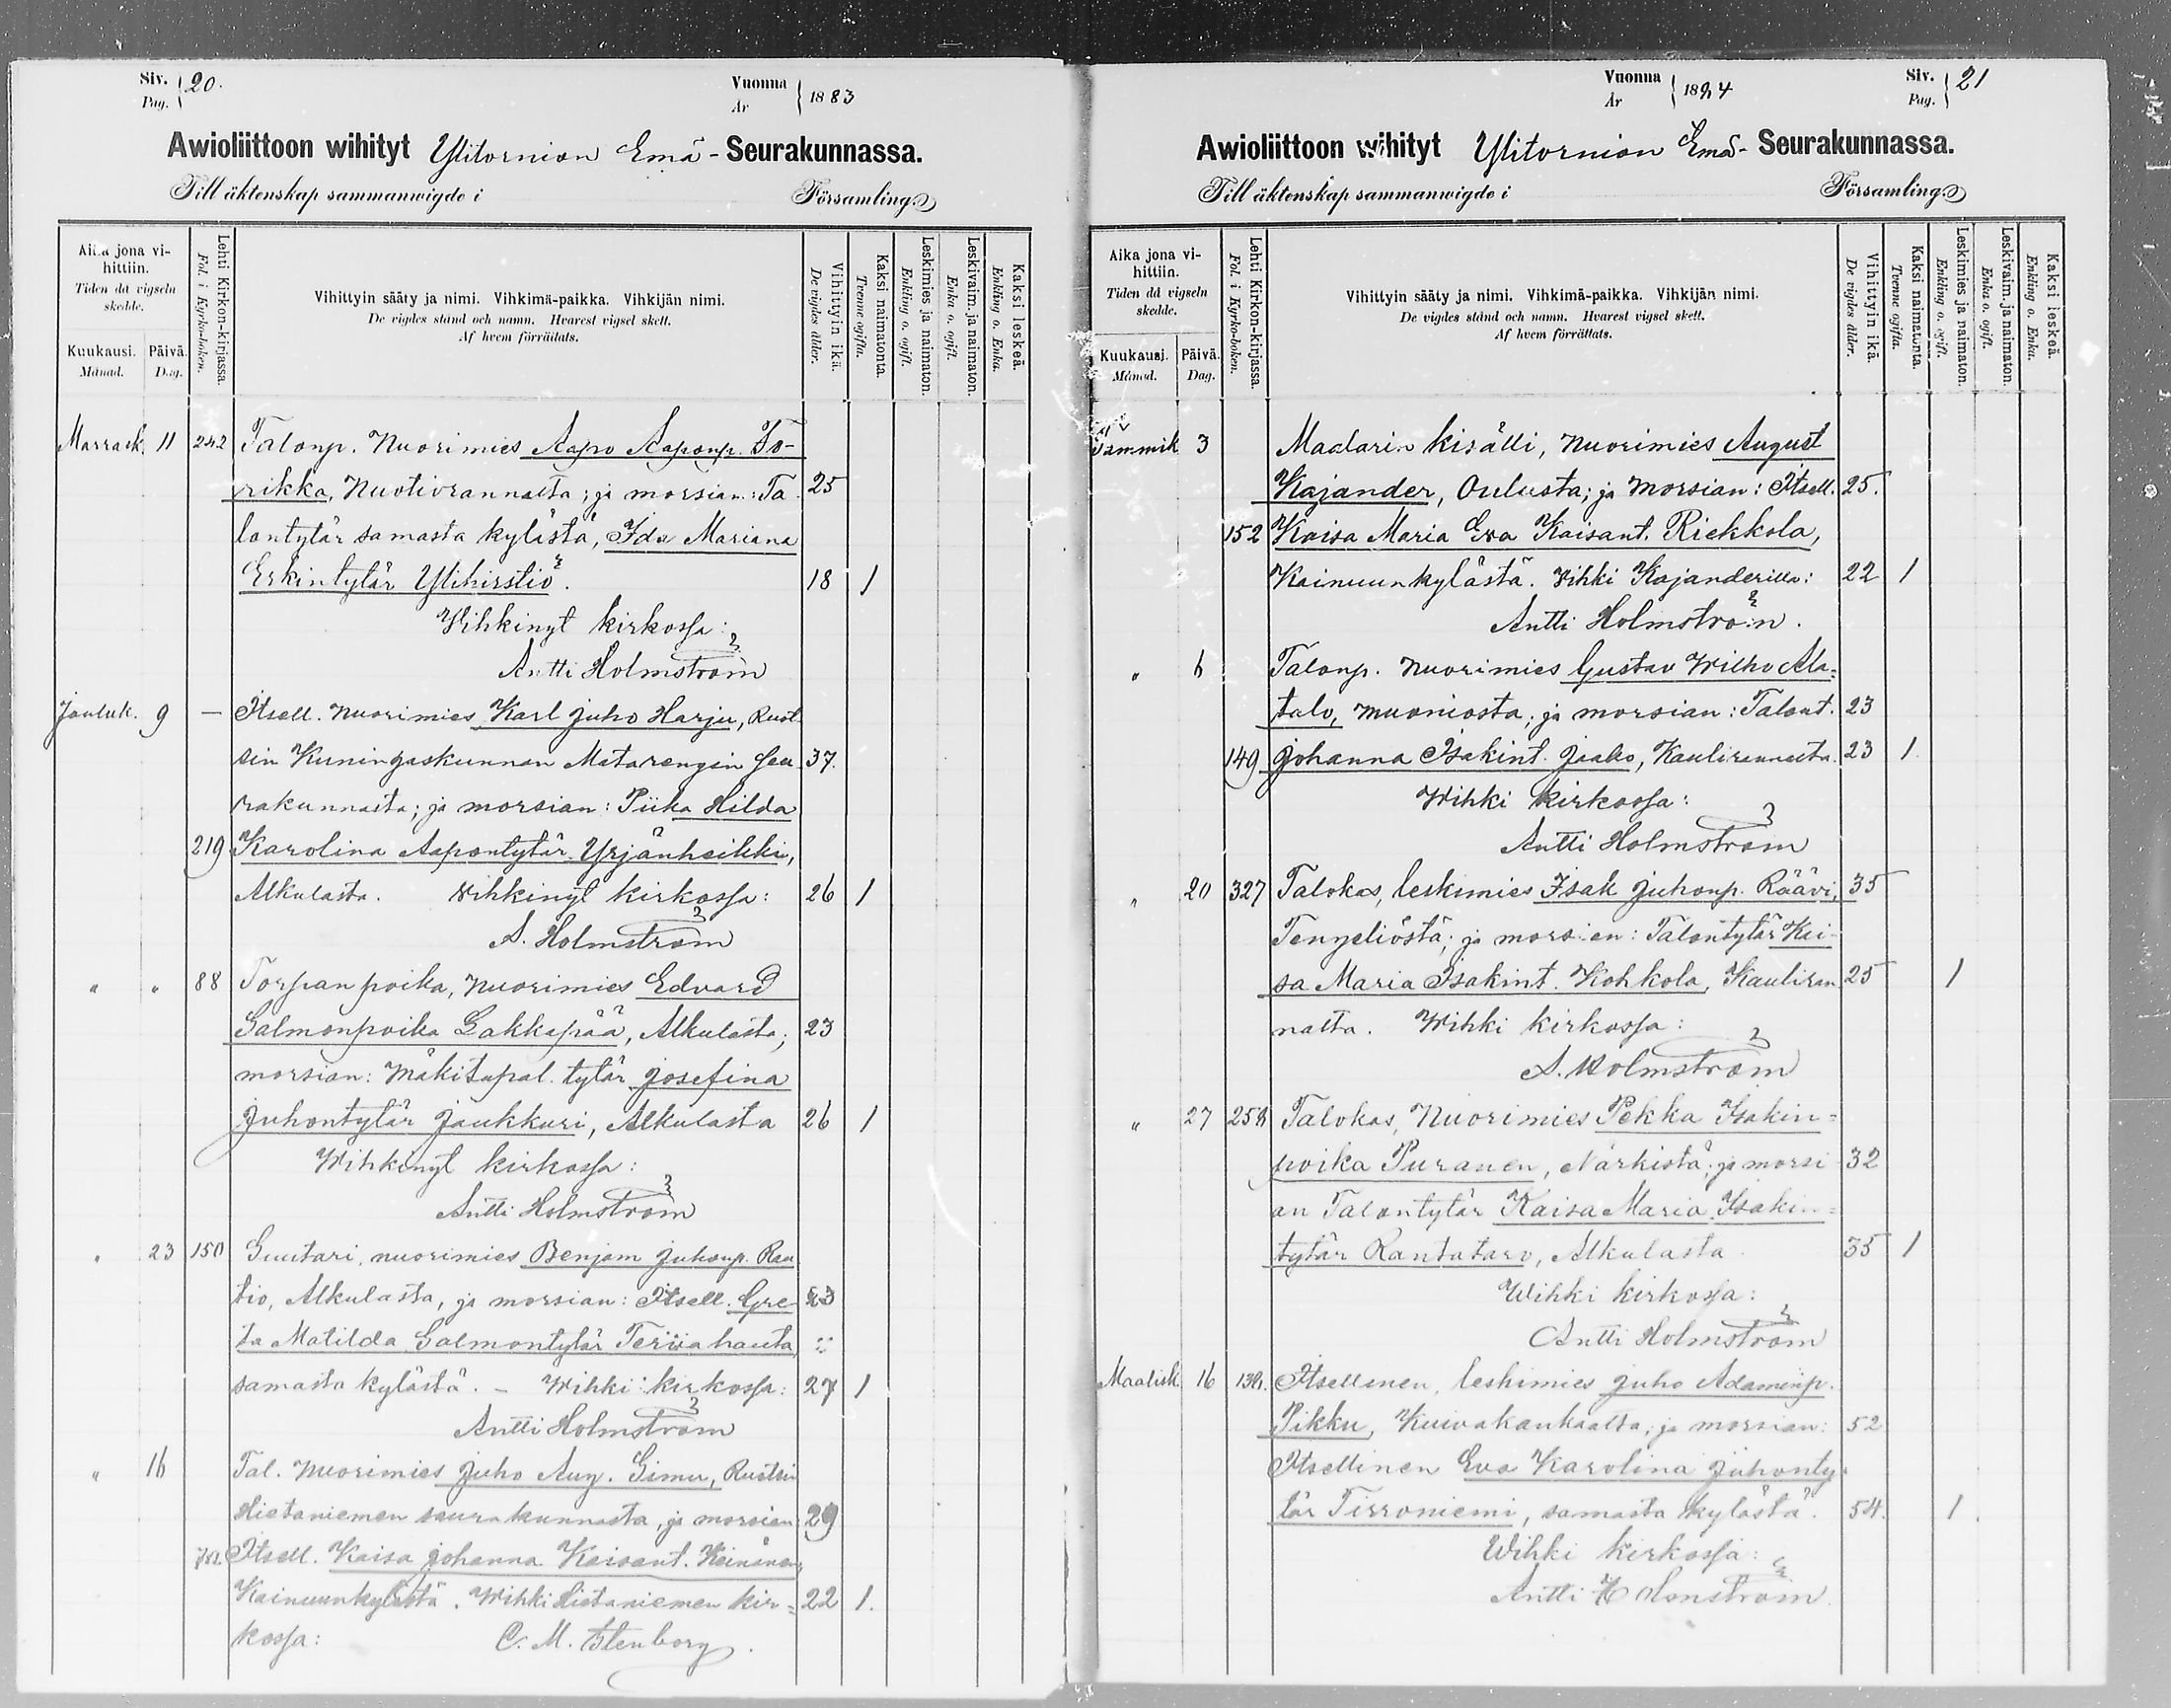 Siv. Pag. 20.
Vuonna År 1883
Awioliittoon wihityt Ylitornion Emä-Seurakunnassa.
Till äktenskap sammanwigde i Församling
Aika jona vihittiin.
Tiden då vigseln skedde.
Kuukausi. Månad.
Päivä. Dag.
Lehti Kirkon-kirjassa. Fol. i Kyrko-boken.
Vihittyin sääty ja nimi. Vihkimä-paikka. Vihkijän nimi.
De vigdes stånd och namn. Hvarest vigsel skett.
Af hvem förrättats.
Vihittyin ikä. De vigdes ålder.
Kaksi naimatonta. Tvenne ogifta.
Leskimies ja naimaton. Enkling o. ogift.
Leskivaim. ja naimaton. Enka o. ogift.
Kaksi leskeä. Enkling o. Enka.
Marrask. 11 242 Talonp. Nuorimies Aapo Aaponp. To-
rikka, Nuotiorannalta; ja morsian: Ta 25
lontytär samasta kylästä, Ida Mariana
Erkintytär Ylihirstiö. 18 1
Wihkinyt kirkossa:
Antti Holmström
Jouluk. 9 — Itsell. Nuorimies Karl Juho Harju, Ruot
sin Kuningaskunnan Matarengin Seu 37.
rakunnasta; ja morsian: Piika Hilda
219 Karolina Aapontytär Yrjänheikki,
Alkulasta. Wihkinyt kirkossa: 26 1
A. Holmström
" " 88 Torpanpoika, Nuorimies Edvard
Salmonpoika Lakkapää, Alkulasta; 23
morsian: Mäkitupal. tytär Josefina
Juhontytär Jaukkuri, Alkulasta 26 1
Wihkinyt kirkossa:
Antti Holmström
" 23 150 Suutari, nuorimies Benjam Juhonp. Rau
tio, Alkulasta, ja morsian: Itsell. Gre- 23
ta Matilda Salmontytär Terwahauta,
samasta kylästä. – Wihki kirkossa: 27 1
Antti Holmström
" 16 Tal. Nuorimies Juho Aug. Simu, Ruotsin
Hietaniemen seurakunnasta, ja morsian: 29
Itsell. Kaisa Johanna Kaisant. Heinänen,
Kainuunkylästä. Wihki Hietaniemen kir= 22 1.
kossa: C. M. Stenborg.
Vuonna År 1884
Siv. Pag. 21
Awioliittoon wihityt Ylitornion Emä-Seurakunnassa.
Till äktenskap sammanwigde i Församling
Aika jona vihittiin.
Tiden då vigseln skedde.
Kuukausi. Månad.
Päivä. Dag.
Lehti Kirkon-kirjassa. Fol. i Kyrko-boken.
Vihittyin sääty ja nimi. Vihkimä-paikka. Vihkijän nimi.
De vigdes stånd och namn. Hvarest vigsel skett.
Af hvem förrättats.
Vihittyin ikä. De vigdes ålder.
Kaksi naimatonta. Tvenne ogifta.
Leskimies ja naimaton. Enkling o. ogift.
Leskivaim. ja naimaton. Enka o. ogift.
Kaksi leskeä. Enkling o. Enka.
Tammik 3 Maalarin kisälli, Nuorimies August
Kajander, Oulusta; ja Morsian: Itsell. 25.
152 Kaisa Maria Ewa Kaisant. Riekkola,
Kainuunkylästä. Wihki Kajanderilla: 22 1
Antti Holmström.
" 6 Talonp. Nuorimies Gustav Wilho Ala=
talo, Muoniosta; ja morsian: Talont. 23
149 Johanna Isakint. Jaako, Kaulirannalta. 23 1
Wihki kirkossa:
Antti Holmström
" 20 327 Talokas, leskimies Isak Juhonp. Räävi, 35
Tengeliöstä; ja morsian: Talontytär Kai-
sa Maria Isakint. Kohkola, Kauliran 25 1
nalta. Wihki kirkossa:
A. Holmström
" 27 258 Talokas, Nuorimies Pekka Isakin=
poika Puranen, Närkistä; ja morsi 32
an Talontytär Kaisa Maria Isakin=
tytär Rantataro, Alkulasta 35 1
Wihki kirkossa:
Antti Holmström
Maalisk 16 Itsellinen, leskimies Juho Adaminp.
Pikku, Kuivakankaalta; ja morsian: 52
Itsellinen Eva Karolina Juhonty
tär Tirroniemi, samasta kylästä. 54. 1.
Wihki kirkossa:
Antti Holmström